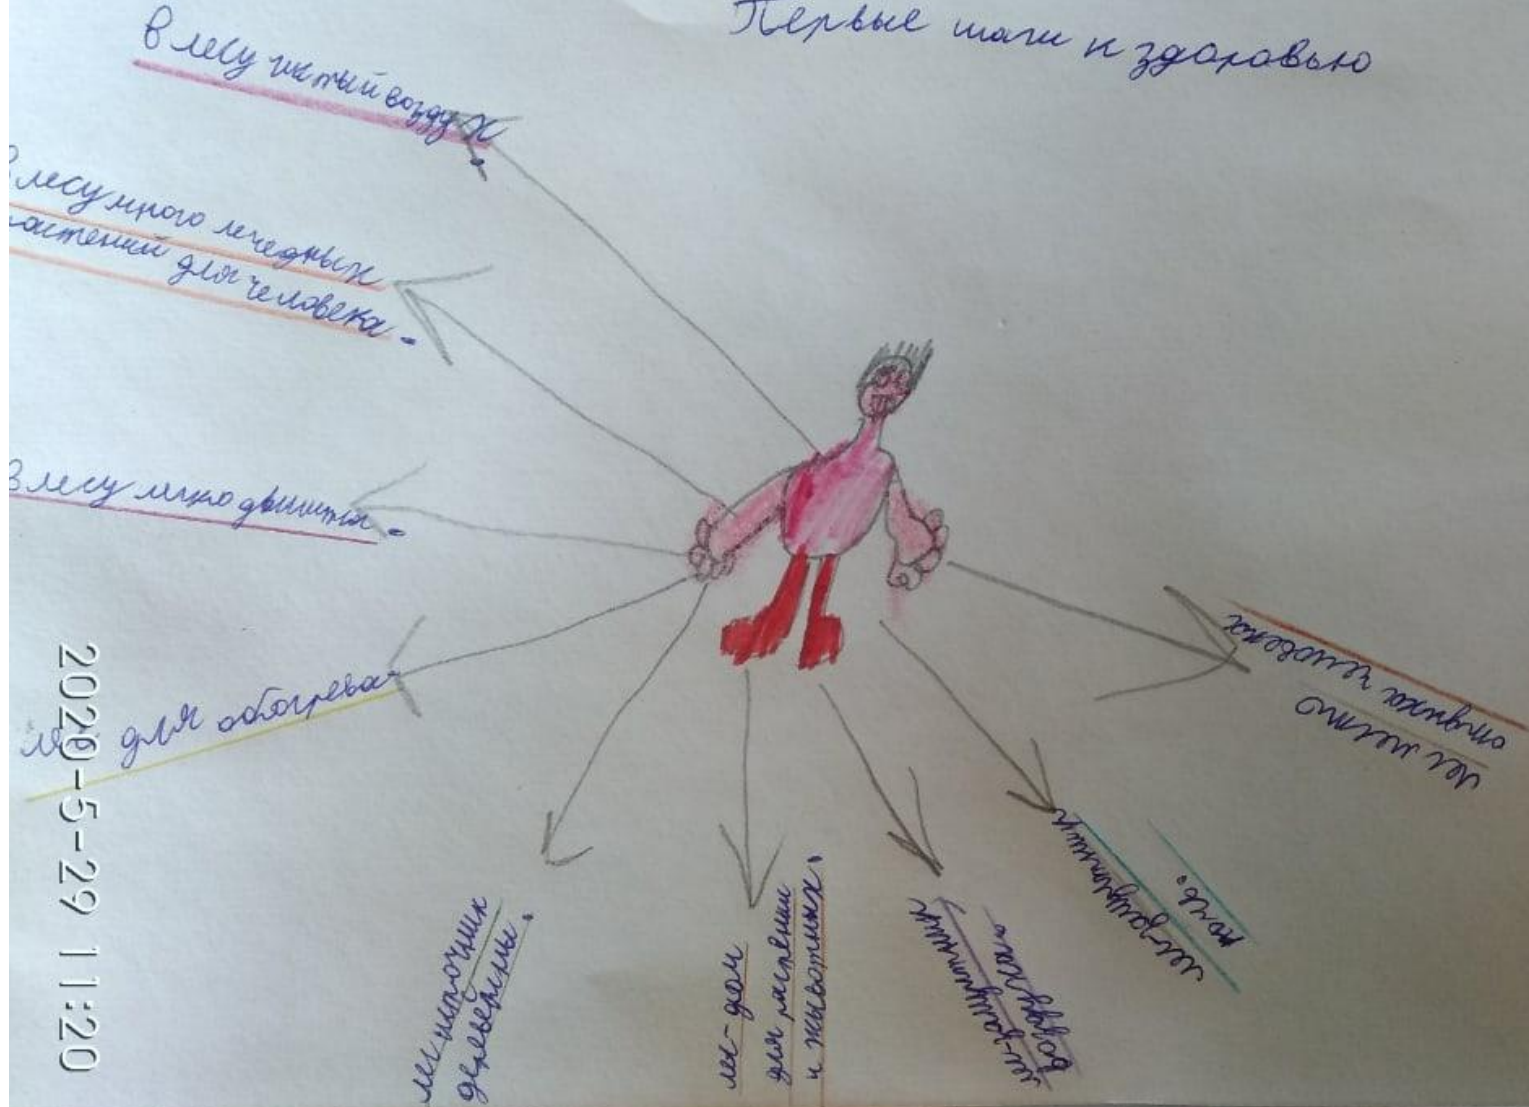 Первые шаги к здоровью
В лесу чистый воздух.
В лесу много лечебных
растений для человека.
В лесу легко двигаться.
лес для обогрева
лес источник
древесины.
лес-дом
для растений
и животных.
лес-защитник
воздуха.
лес-защитник
почв.
лес место
отдыха человека
2020-5-29 11:20